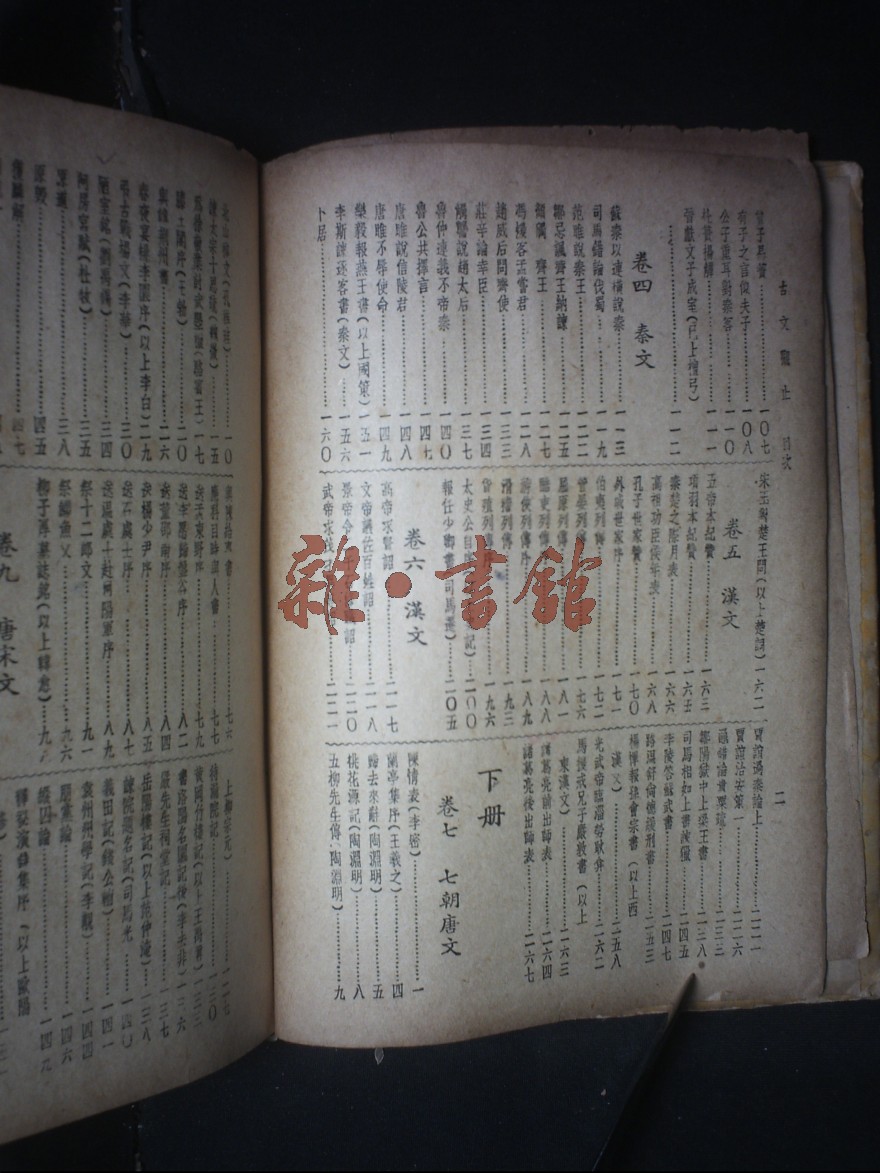 古文觀止 目次
二
有子之言似夫子……一〇八
公子重耳對秦客……一一〇
杜蕢揚觶……一一一
晉獻文子成室(已上檀弓)……一一二
卷四 秦文
蘇秦以連橫說秦……一一三
司馬錯論伐蜀……一一九
范雎說秦王……一二二
鄒忌諷齊王納諫……一二五
顏斶 齊王……一二七
馮煖客孟嘗君……一二八
趙威后問齊使……一三三
莊辛論幸臣……一三四
觸讋說趙太后……
魯仲連義不帝秦……一四〇
魯共公擇言……一四七
唐雎說信陵君……一四八
唐雎不辱使命……一四九
樂毅報燕王書(以上國策)……一五一
李斯諫逐客書(秦文)……一五六
卜居……一六〇
宋玉對楚王問(以上楚詞)……一六二
卷五 漢文
五帝本紀贊……一六三
項羽本紀贊……一六五
秦楚之際月表……一六六
高祖功臣侯年表……一六八
孔子世家贊……一七〇
外戚世家序……一七一
伯夷列傳……一七二
管晏列傳……一七六
屈原列傳……一八一
酷吏列傳……一八八
游俠列傳……一八九
滑稽列傳……一九三
貨殖列傳……一九六
太史公自序……一〇〇
報任少卿書……一〇五
卷六 漢文
高帝求賢詔……一一七
文帝議佐百姓詔……一一八
景帝令……詔……一二〇
武帝求茂……一二一
賈誼過秦論上……
賈誼治安策一……一二六
鼂錯論貴粟疏……一三三
鄒陽獄中上梁王書……一三八
司馬相如上書諫獵……一四五
李陵答蘇武書……一四七
路溫舒尚德緩刑書……一五三
楊惲報孫會宗書(以上西漢文)……一五八
光武帝臨淄勞耿弇……一六二
馬援戒兄子嚴敦書(以上東漢文)……一六三
諸葛亮前出師表……一六四
諸葛亮後出師表……一六七
下册
卷七 七朝唐文
陳情表(李密)……一
蘭亭集序(王羲之)……四
歸去來辭(陶淵明)……五
桃花源記(陶淵明)……八
五柳先生傳(陶淵明)……九
北山移文(孔稚珪)……一〇
諫太宗十思疏(魏徵)……一五
爲徐敬業討武曌檄(駱賓王)……一七
滕王閣序(王勃)……
與韓荊州書……一六
春夜宴桃李園序(以上李白)……一九
弔古戰場文(李華)……三〇
陋室銘(劉禹錫)……三四
阿房宮賦(杜牧)……三五
原道……三八
原毀……四五
獲麟解……四七
應科目時與人書……七七
送孟東野序……七九
送李愿歸盤谷序……八二
送董邵南序……八四
送楊少尹序……八五
送石處士序……八七
送溫處士赴河陽軍序……八九
祭十二郎文……九一
祭鱷魚文……九六
柳子厚墓誌銘(以上韓愈)……九
卷九 唐宋文
待漏院記……
黃岡竹樓記(以上王禹偁)……一三三
書洛陽名園記後(李去非)……一三六
嚴先生祠堂記……一三七
岳陽樓記(以上范仲淹)……一三八
諫院題名記(司馬光)……
義田記(錢公輔)……一四一
袁州州學記(李覯)……一四四
朋黨論……一四六
縱囚論……一四九
釋秘演詩集序(以上歐陽
雜·書館